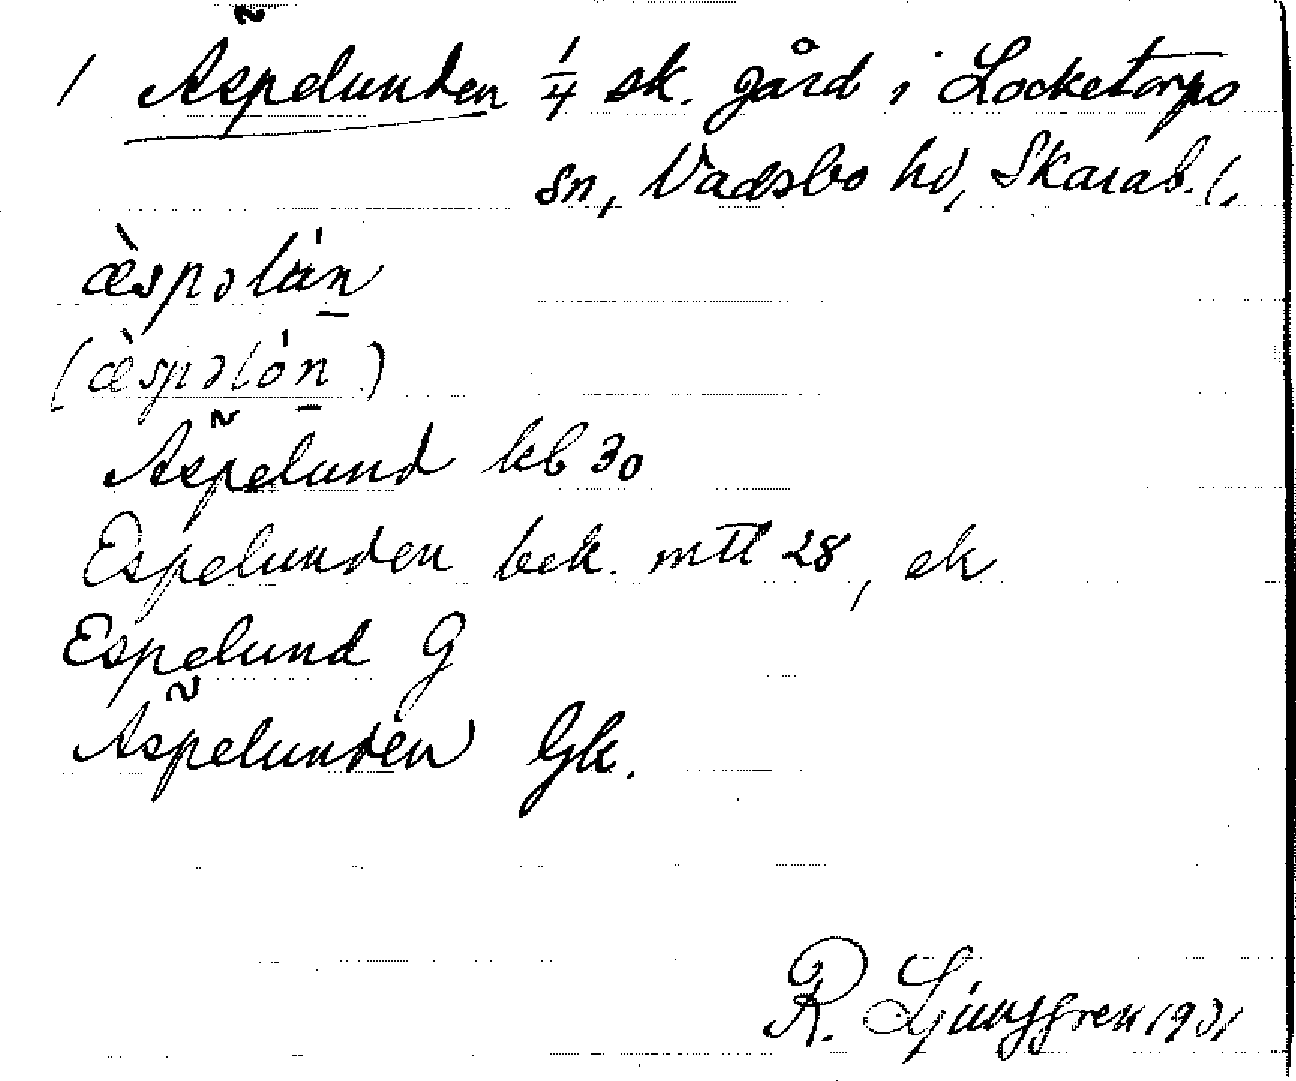 1 Äspelunden 1/4 sk. gård i Locketorps
sn, Vadsbo hd, Skarab. l.
æ̀spəlún̠
(æ̀spəlón̠)
Äspelund kb 30
Espelunden bek. mtl 28, ek
Espelund G
Äspelunden Gk.
R. Ljunggren 1931